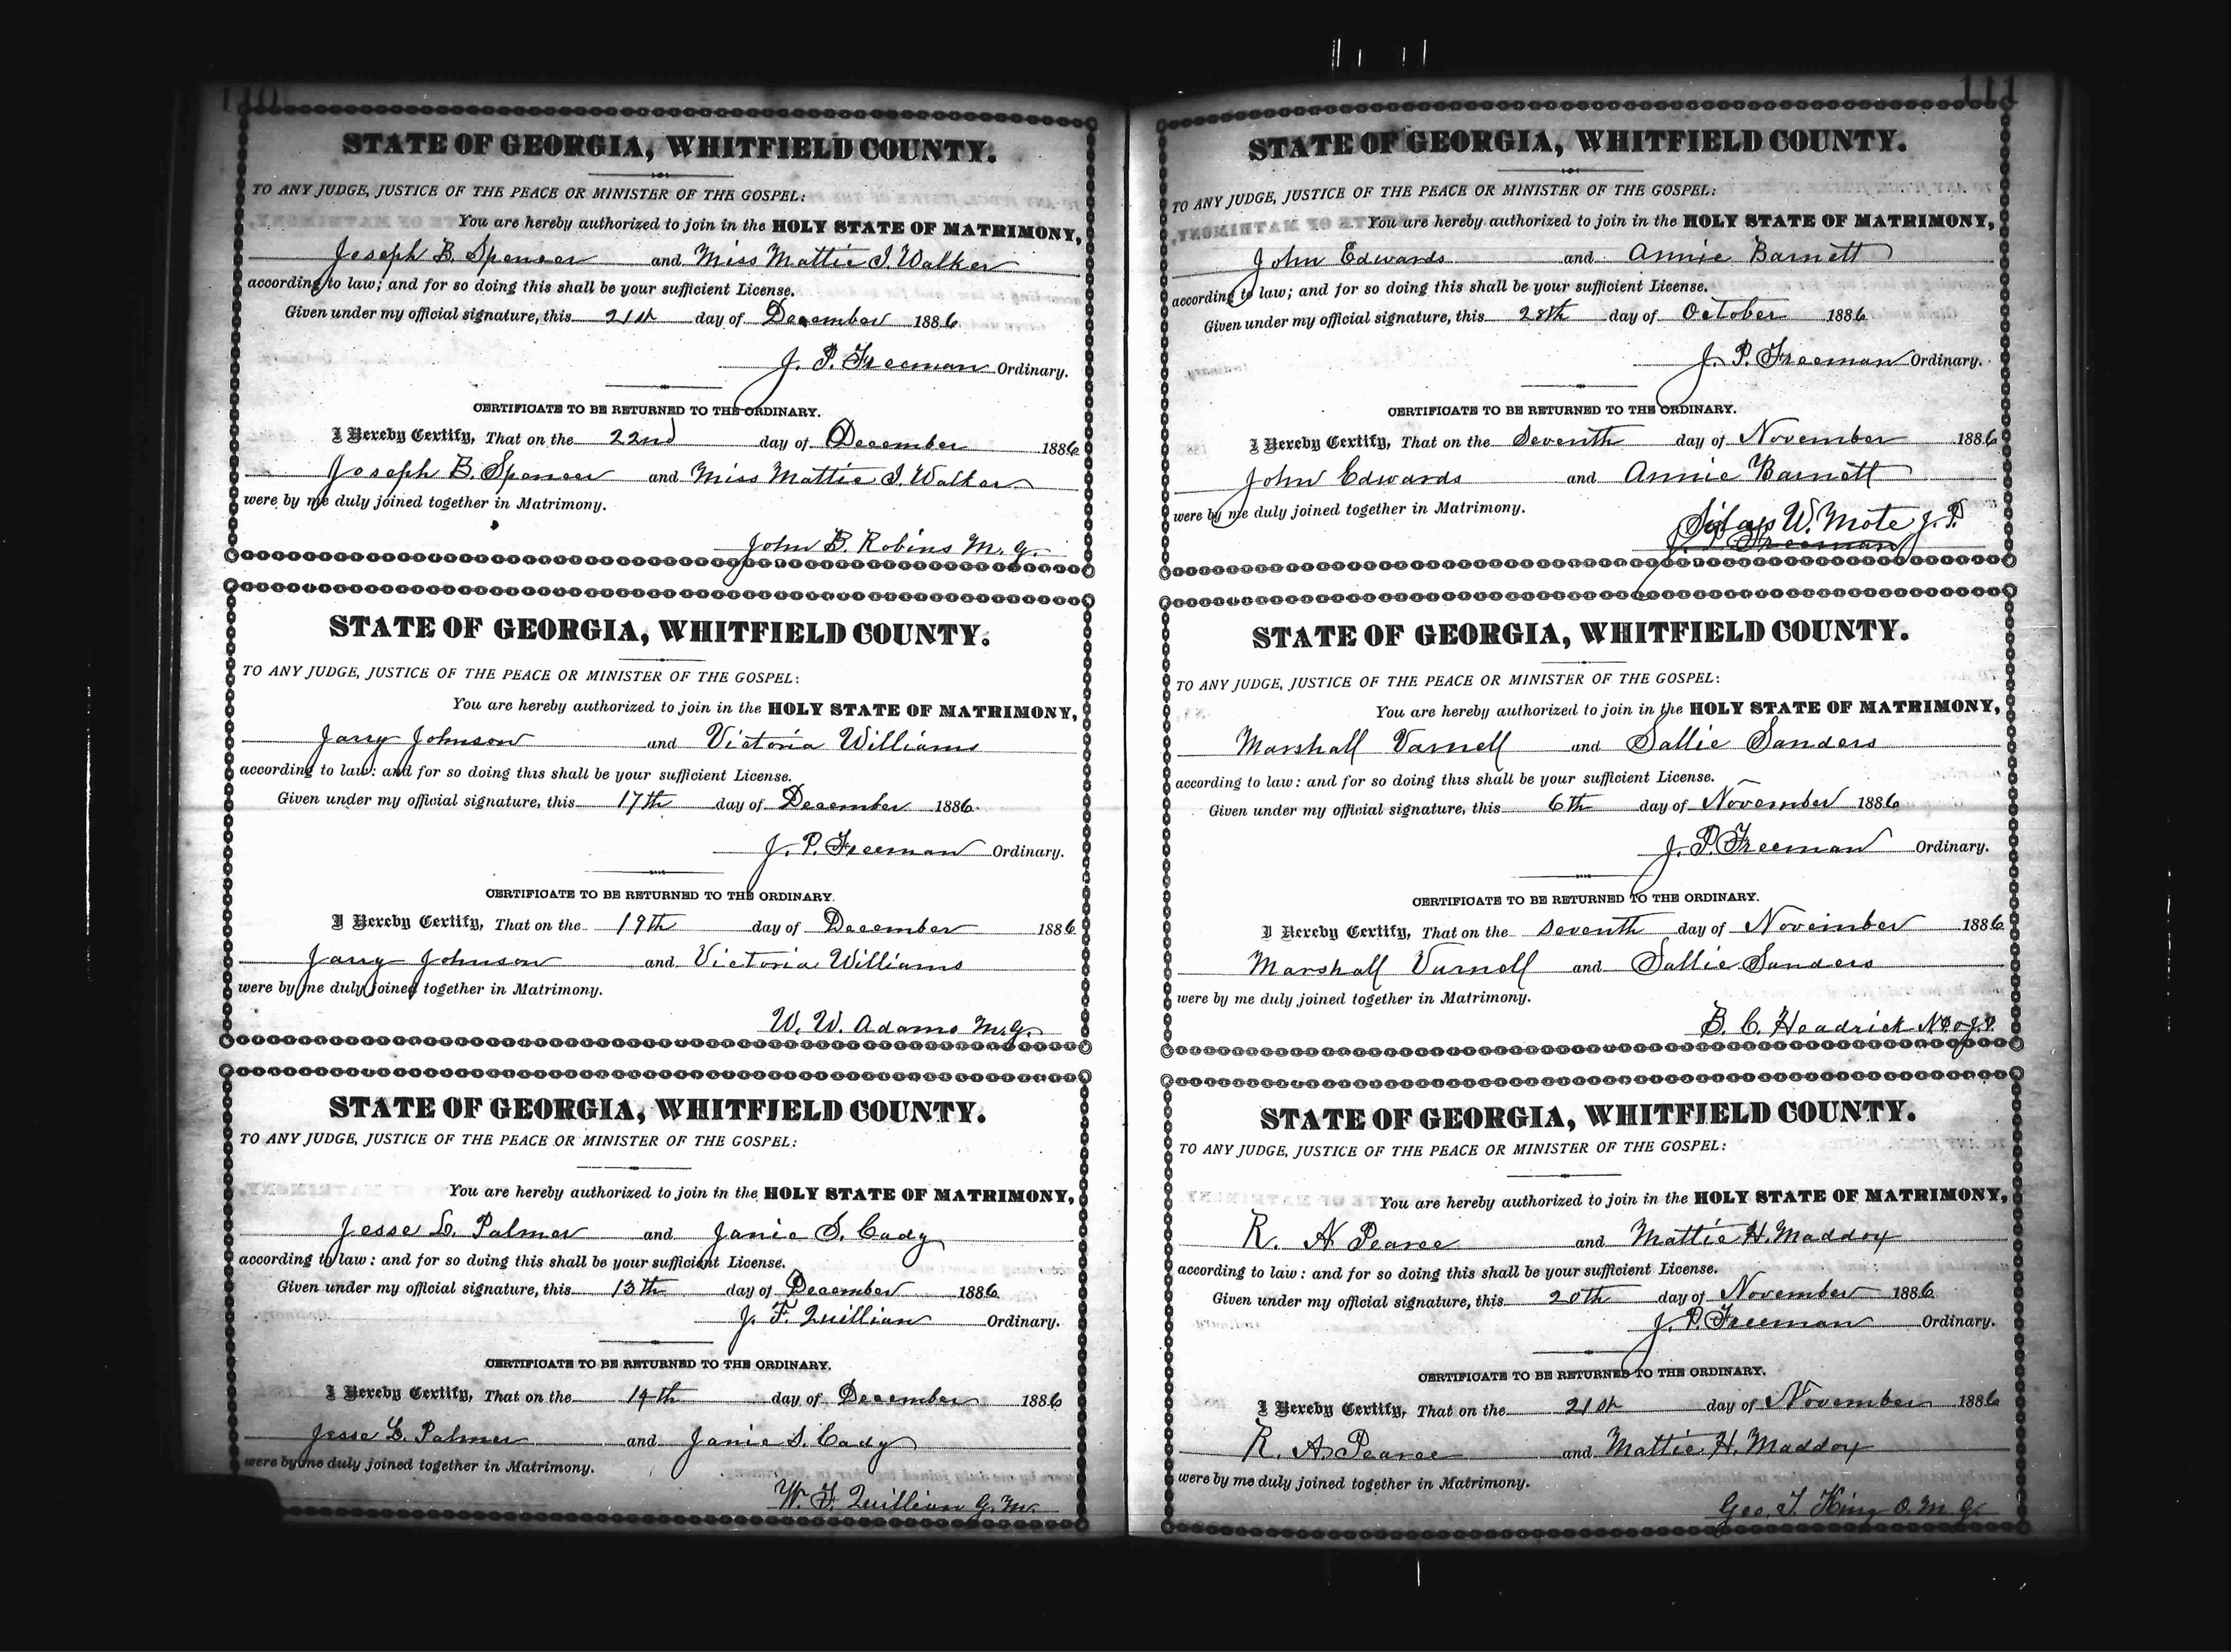 110
STATE OF GEORGIA, WHITFIELD COUNTY.
TO ANY JUDGE, JUSTICE OF THE PEACE OR MINISTER OF THE GOSPEL:
You are hereby authorized to join in the HOLY STATE OF MATRIMONY,
Joseph B. Spencer and Miss Mattie I. Walker
according to law; and for so doing this shall be your sufficient License.
Given under my official signature, this 21st day of December 1886
J. P. Freeman Ordinary.
CERTIFICATE TO BE RETURNED TO THE ORDINARY.
I Hereby Certify, That on the 22nd day of December 1886
Joseph B. Spencer and Miss Mattie I. Walker
were by me duly joined together in Matrimony.
John B. Robins M. G.
STATE OF GEORGIA, WHITFIELD COUNTY.
TO ANY JUDGE, JUSTICE OF THE PEACE OR MINISTER OF THE GOSPEL:
You are hereby authorized to join in the HOLY STATE OF MATRIMONY,
Jarry Johnson and Victoria Williams
according to law: and for so doing this shall be your sufficient License.
Given under my official signature, this 17th day of December 1886.
J. P. Freeman Ordinary.
CERTIFICATE TO BE RETURNED TO THE ORDINARY.
I Hereby Certify, That on the 19th day of December 1886
Jarry Johnson and Victoria Williams
were by me duly joined together in Matrimony.
W. W. Adams M.G.
STATE OF GEORGIA, WHITFIELD COUNTY.
TO ANY JUDGE, JUSTICE OF THE PEACE OR MINISTER OF THE GOSPEL:
You are hereby authorized to join in the HOLY STATE OF MATRIMONY,
Jesse L. Palmer and Janie S. Cady
according to law: and for so doing this shall be your sufficient License.
Given under my official signature, this 13th day of December 1886
J. F. Quillian Ordinary.
CERTIFICATE TO BE RETURNED TO THE ORDINARY.
I Hereby Certify, That on the 14th day of December 1886
Jesse L. Palmer and Janie S. Cady
were by me duly joined together in Matrimony.
W. F. Quillian G. M.
111
STATE OF GEORGIA, WHITFIELD COUNTY.
TO ANY JUDGE, JUSTICE OF THE PEACE OR MINISTER OF THE GOSPEL:
You are hereby authorized to join in the HOLY STATE OF MATRIMONY,
John Edwards and Annie Barnett
according to law; and for so doing this shall be your sufficient License.
Given under my official signature, this 28th day of October 1886
J. P. Freeman Ordinary.
CERTIFICATE TO BE RETURNED TO THE ORDINARY.
I Hereby Certify, That on the Seventh day of November 1886
John Edwards and Annie Barnett
were by me duly joined together in Matrimony.
Silas W. Mote J. P.
J. P. Freeman
STATE OF GEORGIA, WHITFIELD COUNTY.
TO ANY JUDGE, JUSTICE OF THE PEACE OR MINISTER OF THE GOSPEL:
You are hereby authorized to join in the HOLY STATE OF MATRIMONY,
Marshall Varnell and Sallie Sanders
according to law: and for so doing this shall be your sufficient License.
Given under my official signature, this 6th day of November 1886
J. P. Freeman Ordinary.
CERTIFICATE TO BE RETURNED TO THE ORDINARY.
I Hereby Certify, That on the seventh day of November 1886
Marshall Varnell and Sallie Sanders
were by me duly joined together in Matrimony.
B. C. Headrick
STATE OF GEORGIA, WHITFIELD COUNTY.
TO ANY JUDGE, JUSTICE OF THE PEACE OR MINISTER OF THE GOSPEL:
You are hereby authorized to join in the HOLY STATE OF MATRIMONY,
R. A Pearce and Mattie H. Maddox
according to law: and for so doing this shall be your sufficient License.
Given under my official signature, this 20th day of November 1886
J. P. Freeman Ordinary.
CERTIFICATE TO BE RETURNED TO THE ORDINARY.
I Hereby Certify, That on the 21st day of November 1886
R. A. Pearce and Mattie H. Maddox
were by me duly joined together in Matrimony.
Geo. T. King O. M. G.